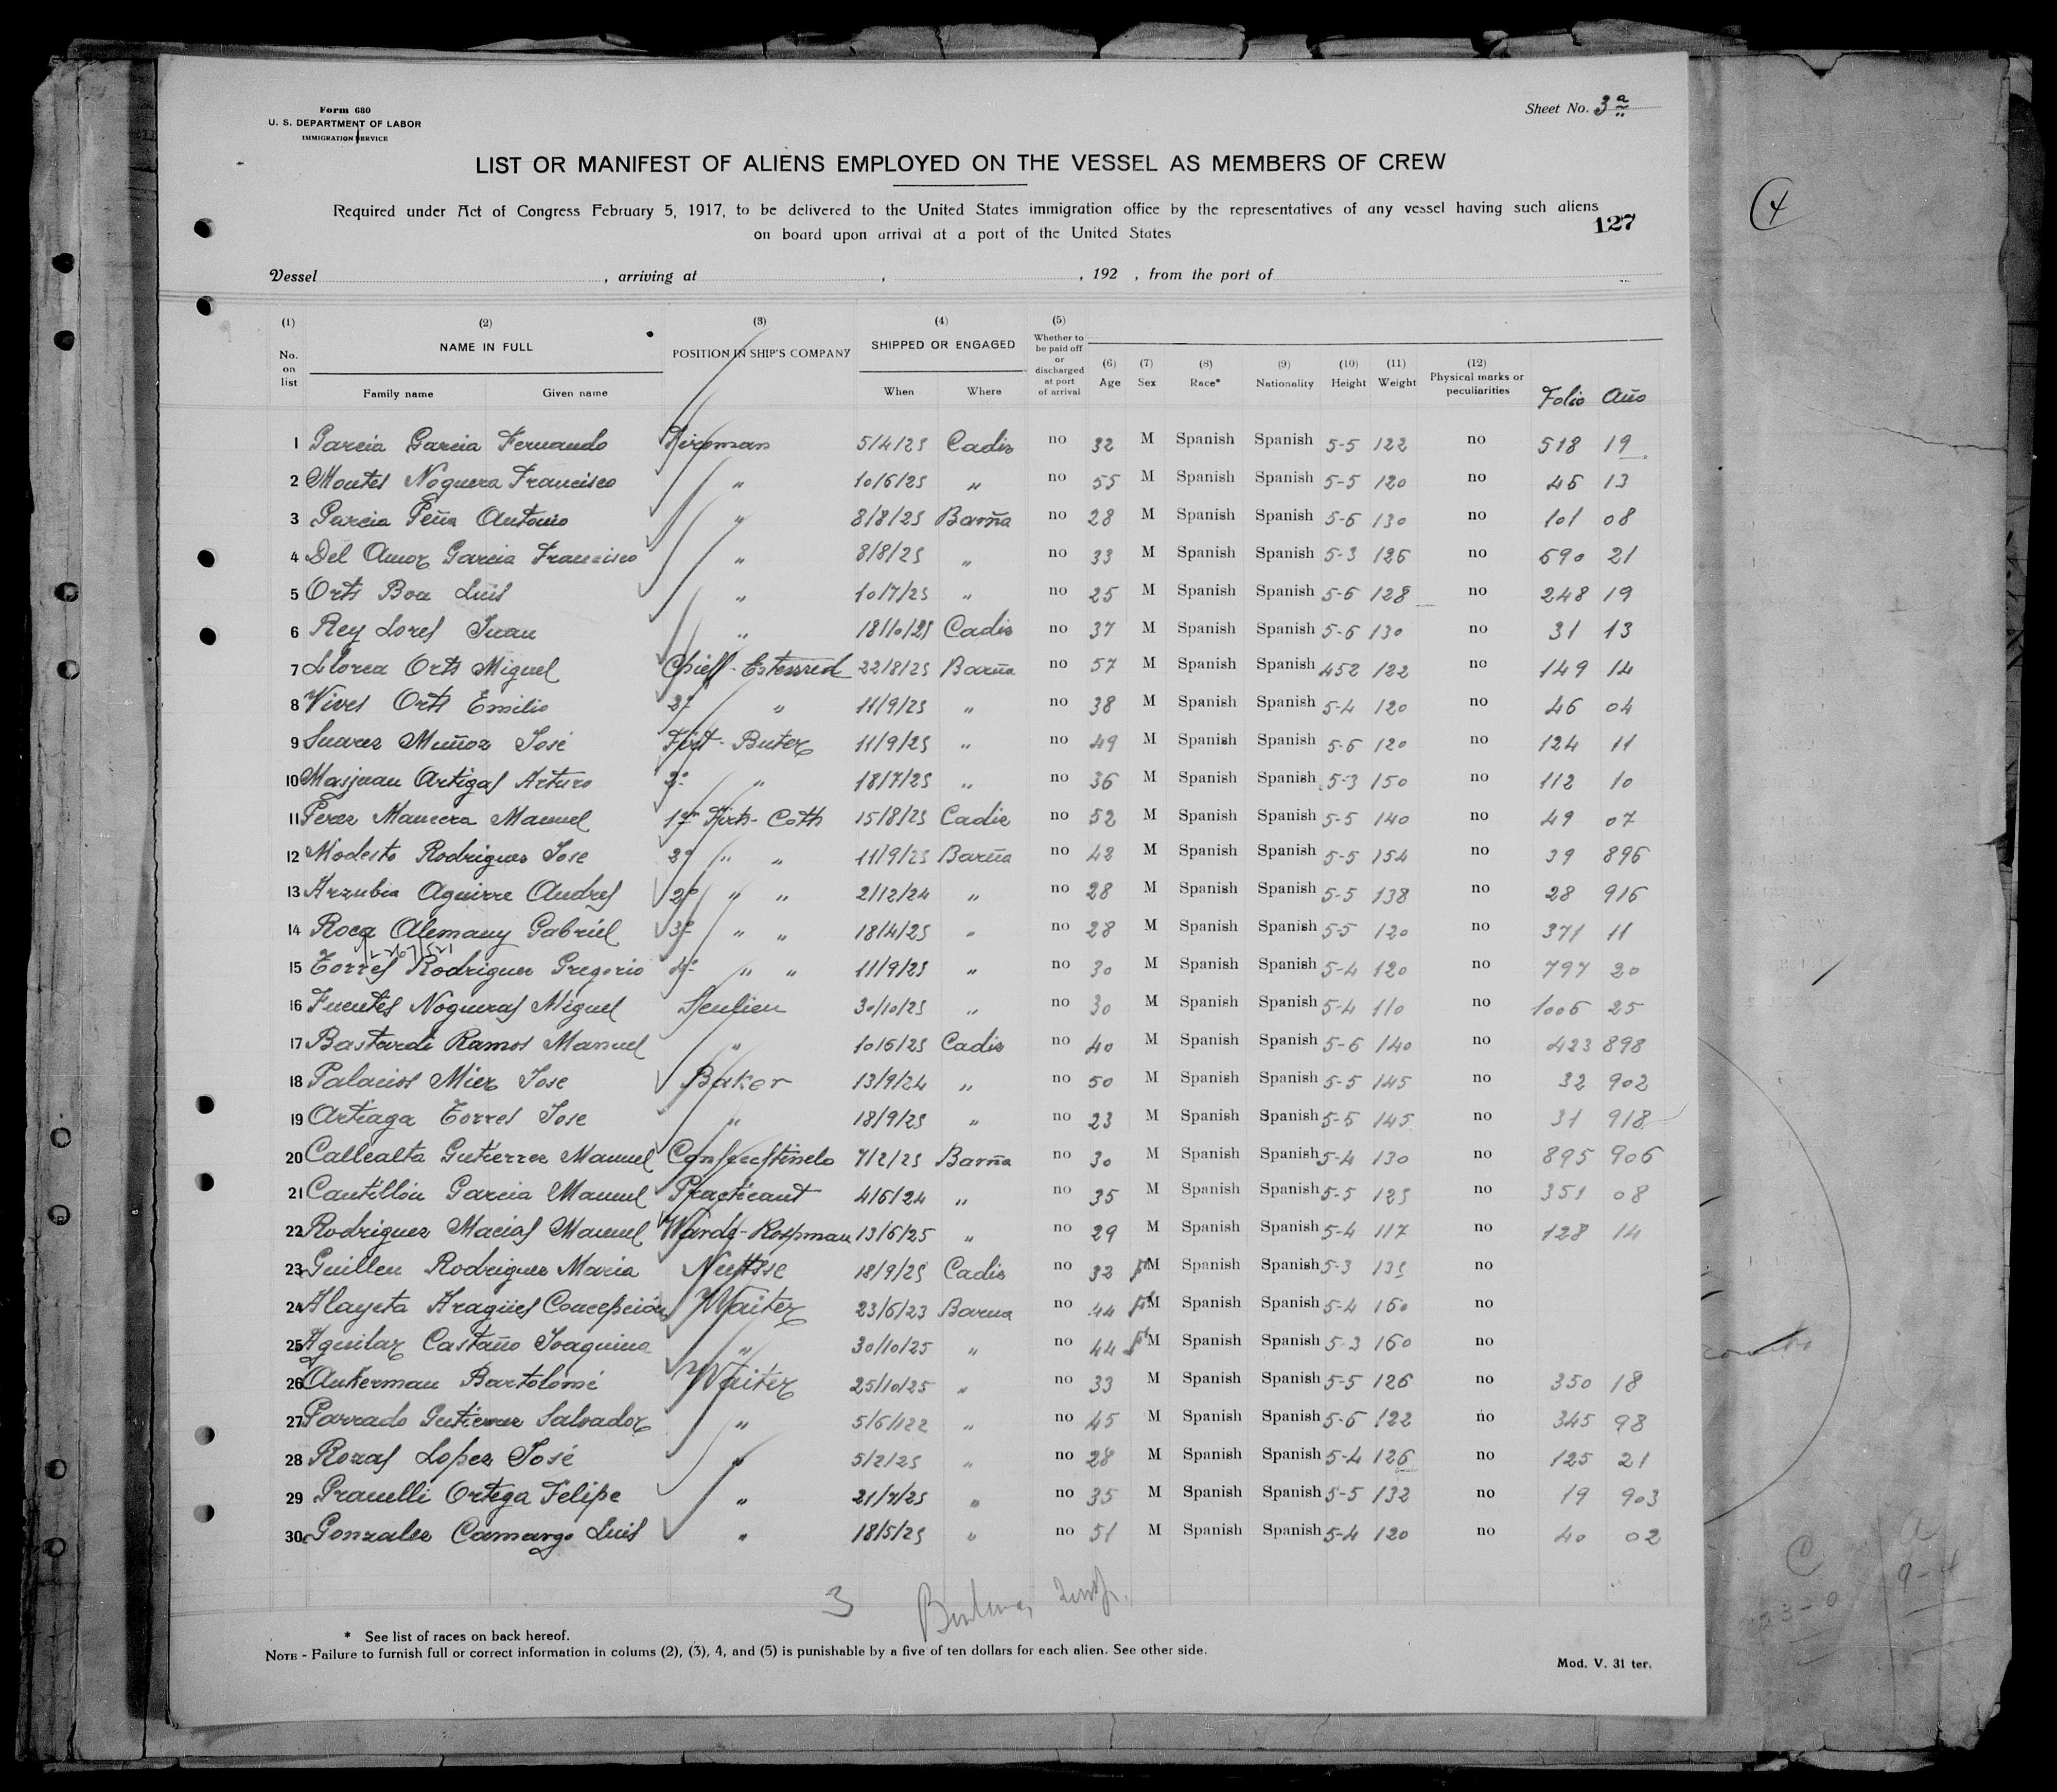 Form 680
U. S. DEPARTMENT OF LABOR
IMMIGRATION SERVICE
Sheet No. 3ª
LIST OR MANIFEST OF ALIENS EMPLOYED ON THE VESSEL AS MEMBERS OF CREW
Required under Act of Congress February 5, 1917, to be delivered to the United States immigration office by the representatives of any vessel having such aliens
on board upon arrival at a port of the United States
127
Vessel , arriving at , , 192 , from the port of
(1) No. on list (2) NAME IN FULL Family name Given name (3) POSITION IN SHIP'S COMPANY (4) SHIPPED OR ENGAGED When Where (5) Whether to be paid off or discharged at port of arrival (6) Age (7) Sex (8) Race* (9) Nationality (10) Height (11) Weight (12) Physical marks or peculiarities Folio Año
1 Garcia Garcia Fernando Fireman 5/4/25 Cadis no 32 M Spanish Spanish 5-5 122 no 518 19
2 Montes Noguera Francisco " 10/6/25 " no 55 M Spanish Spanish 5-5 120 no 46 13
3 Garcia Peña Antonio " 8/8/25 Barña no 28 M Spanish Spanish 5-6 130 no 101 08
4 Del Amor Garcia Francisco " 8/8/25 " no 33 M Spanish Spanish 5-3 126 no 690 21
5 Orts Boa Luis " 10/7/25 " no 25 M Spanish Spanish 5-6 128 no 248 19
6 Rey Lores Juan " 18/10/25 Cadis no 37 M Spanish Spanish 5-6 130 no 31 13
7 Llorca Orts Miguel Chieff-Estewred 22/8/25 Barña no 57 M Spanish Spanish 452 122 no 149 14
8 Vives Orts Emilio 2º " 11/9/25 " no 38 M Spanish Spanish 5-4 120 no 46 04
9 Suarez Muñoz José First-Buter 11/9/25 " no 49 M Spanish Spanish 5-6 120 no 124 11
10 Masjuan Artigas Arturo 2º " 18/7/25 " no 36 M Spanish Spanish 5-3 150 no 112 10
11 Perez Mancera Manuel 1er Coth 15/8/25 Cadiz no 52 M Spanish Spanish 5-5 140 no 49 07
12 Modesto Rodriguez Jose 2º " " 11/9/25 Barña no 42 M Spanish Spanish 5-5 154 no 39 896
13 Arzubia Aguirre Andres 2º " " 2/12/24 " no 28 M Spanish Spanish 5-5 138 no 28 916
14 Roca Alemany Gabriel 3º " " 18/4/25 " no 28 M Spanish Spanish 5-5 120 no 371 11
15 Torres Rodriguez Gregorio 4º " " 11/9/25 " no 30 M Spanish Spanish 5-4 120 no 797 20
16 Fuentes Nogueras Miguel 30/10/25 " no 30 M Spanish Spanish 5-4 110 no 1006 25
17 Bastardi Ramos Manuel " 10/6/25 Cadis no 40 M Spanish Spanish 5-6 140 no 423 898
18 Palacios Mier Jose Baker 13/9/24 " no 50 M Spanish Spanish 5-5 145 no 32 902
19 Artiaga Torres Jose " 18/9/25 " no 23 M Spanish Spanish 5-5 145 no 31 918
20 Callealta Gutierrez Manuel 7/2/25 Barña no 30 M Spanish Spanish 5-4 130 no 895 906
21 Cantillón Garcia Manuel Practicant 4/6/24 " no 35 M Spanish Spanish 5-5 125 no 351 08
22 Rodriguez Macias Manuel Ward-Rospman 13/6/25 " no 29 M Spanish Spanish 5-4 117 no 128 14
23 Guillen Rodriguez Maria 18/9/25 Cadis no 32 f M Spanish Spanish 5-3 135 no
24 Alayeta Aragües Concepción Waiter 23/6/23 Barna no 44 f M Spanish Spanish 5-4 160 no
25 Aguilar Castaño Joaquina " 30/10/25 " no 44 f M Spanish Spanish 5-3 160 no
26 Ankerman Bartolomé Waiter 25/10/25 " no 33 M Spanish Spanish 5-5 126 no 350 18
27 Parrado Gutierrez Salvador " 5/6/122 " no 45 M Spanish Spanish 5-6 122 no 345 98
28 Rozas Lopez José " 5/2/25 " no 28 M Spanish Spanish 5-4 126 no 125 21
29 Granelli Ortega Felipe " 21/7/25 " no 35 M Spanish Spanish 5-5 132 no 19 903
30 Gonzalez Camargo Luis " 18/5/25 " no 51 M Spanish Spanish 5-4 120 no 40 02
3
* See list of races on back hereof.
NOTE - Failure to furnish full or correct information in colums (2), (3), 4, and (5) is punishable by a five of ten dollars for each alien. See other side.
Mod. V. 31 ter.